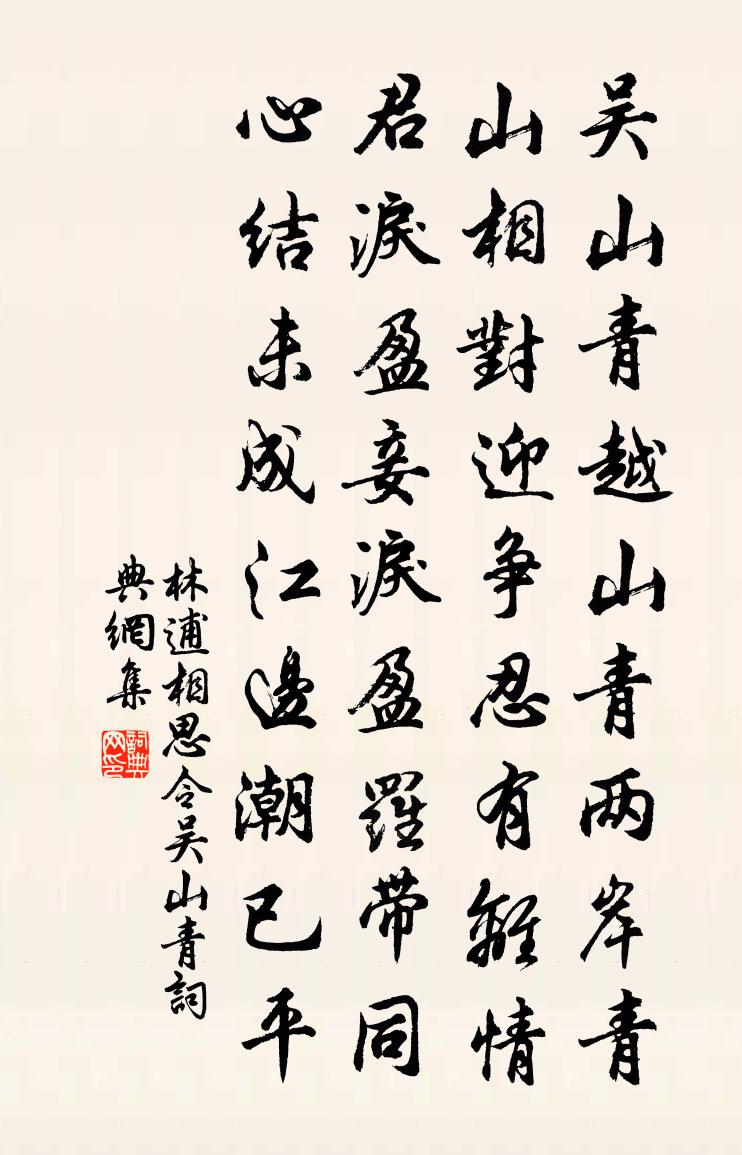 吴山青越山青两岸青
山相對迎争忍有離情
君淚盈妾淚盈羅带同
心结未成江邊潮已平
林逋相思令吴山青詞
典網集
詞典
网印